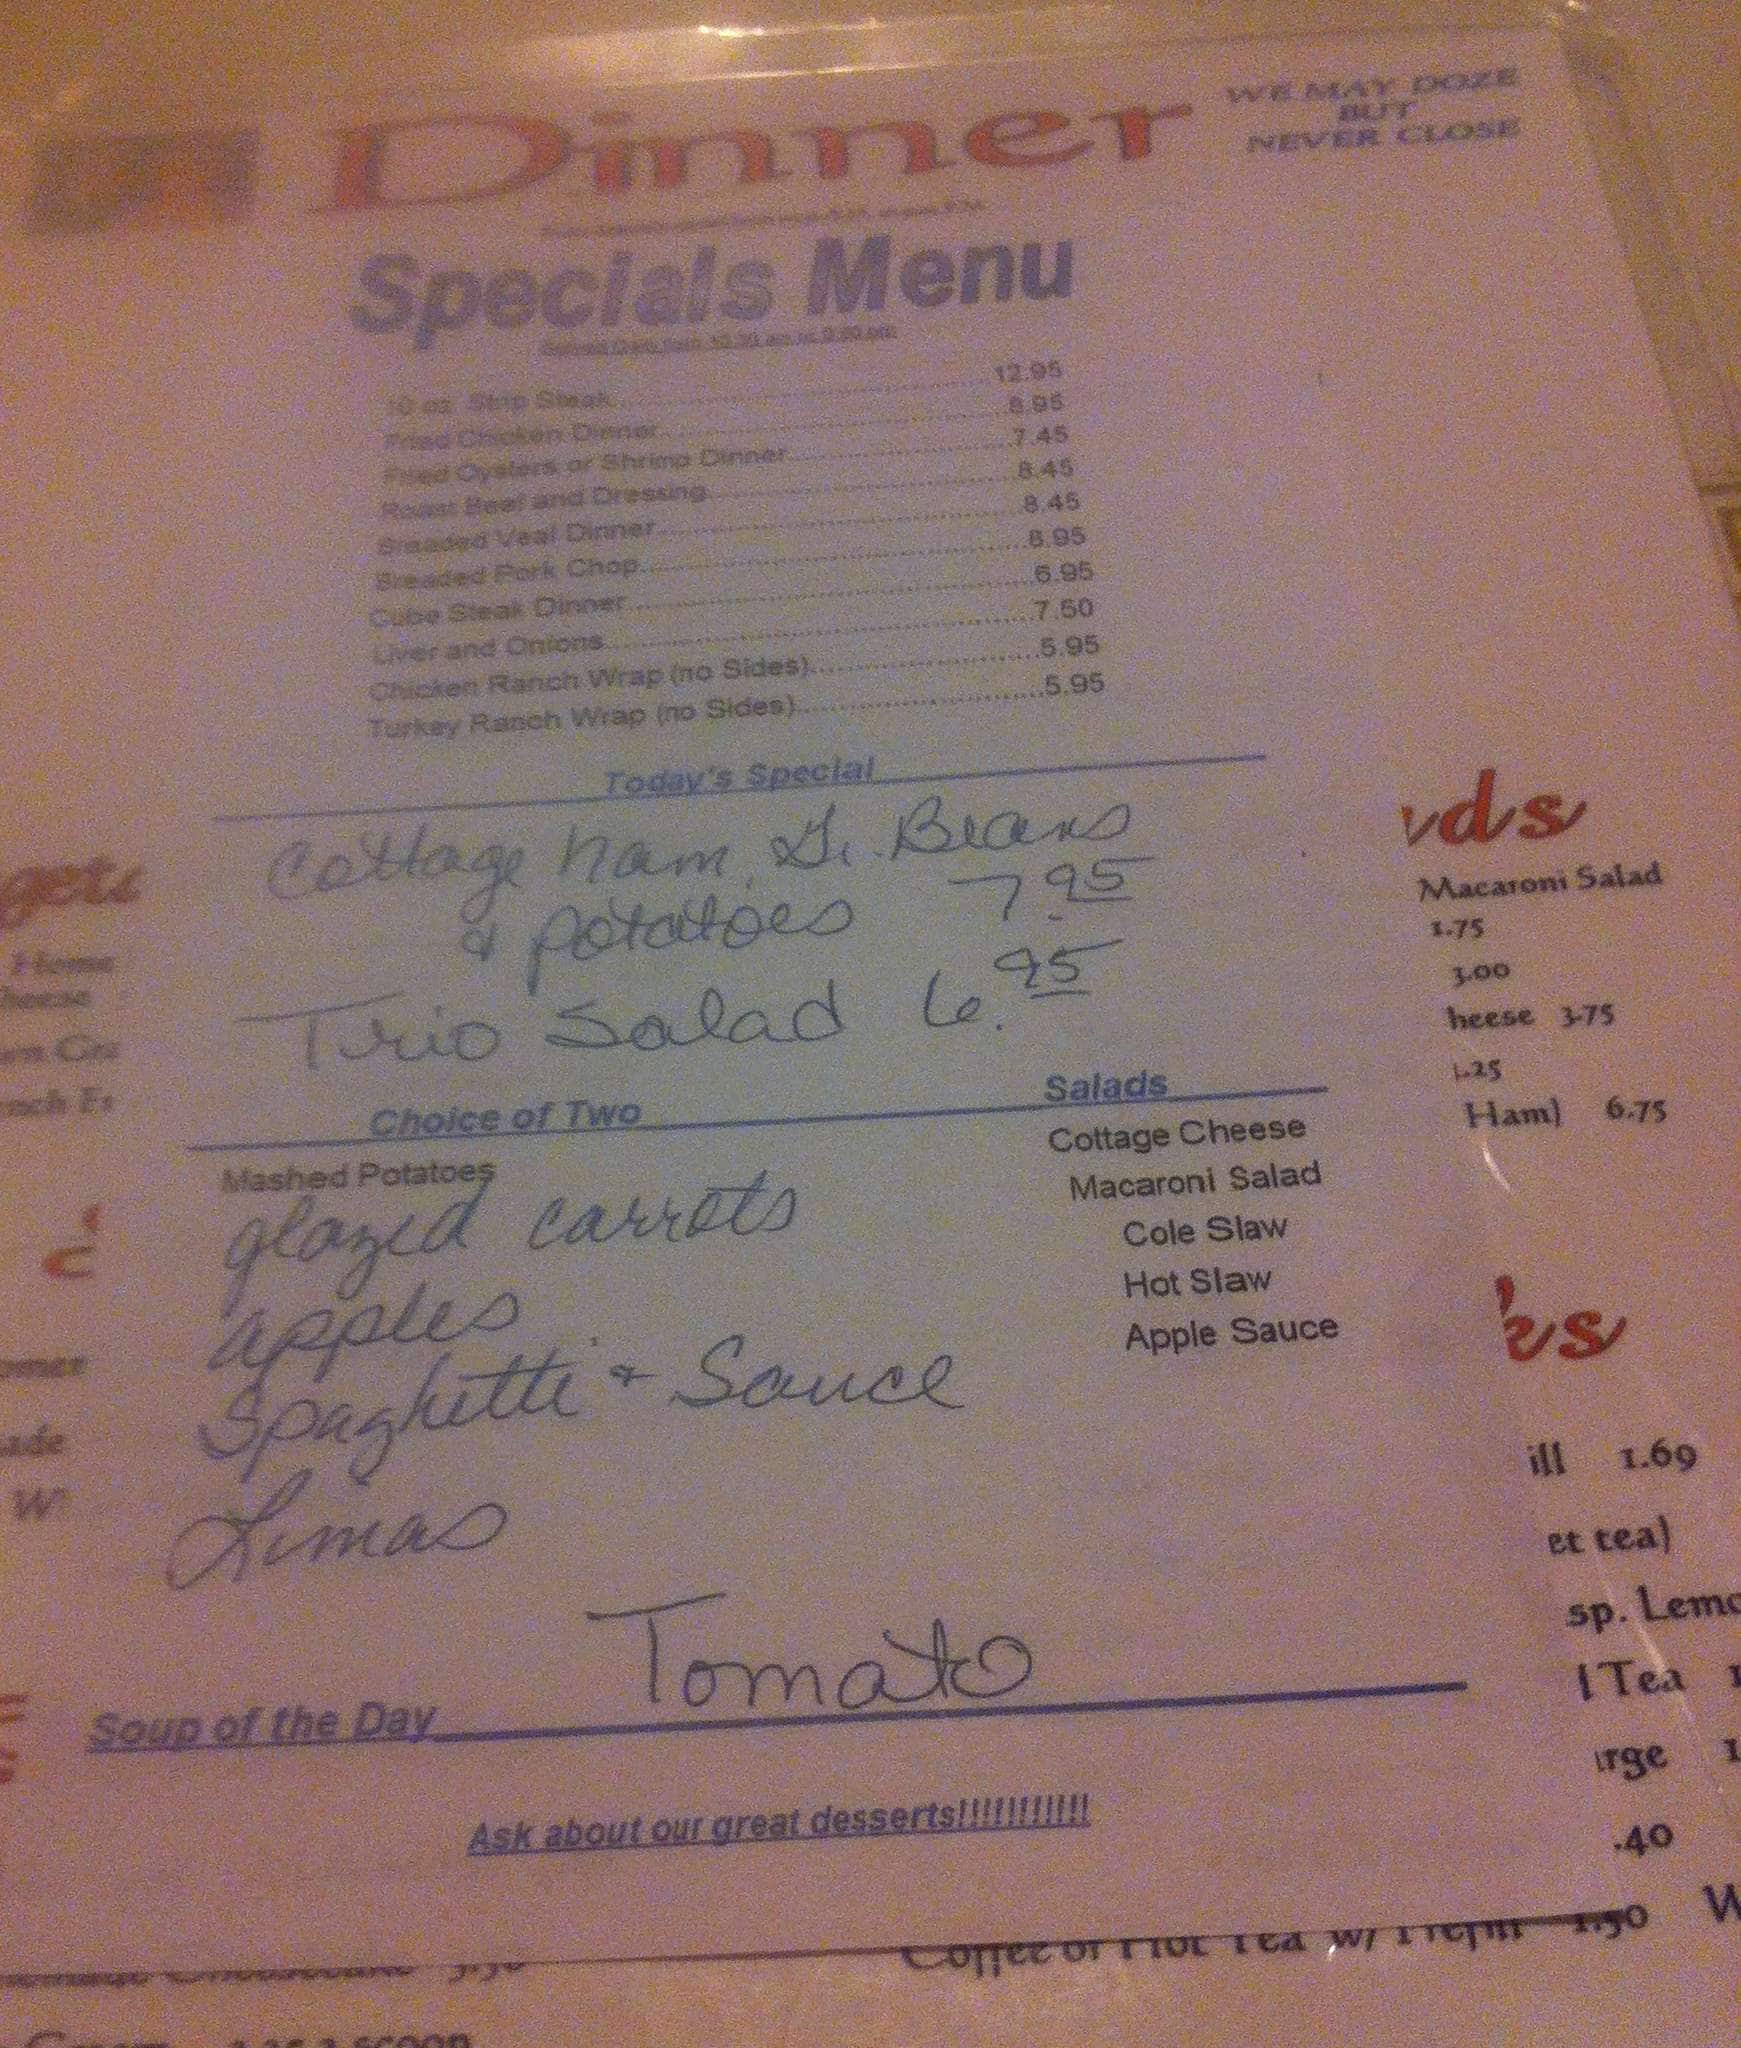 Dinner
WE MAY DOZE
BUT
NEVER CLOSE
Specials Menu
10 oz. Strip Steak 12.95
Fried Chicken Dinner 8.95
Fried Oysters or Shrimp Dinner 7.45
Roast Beef and Dressing 8.45
Breaded Veal Dinner 8.45
Breaded Pork Chop 8.95
Cube Steak Dinner 6.95
Liver and Onions 7.50
Chicken Ranch Wrap (no Sides) 5.95
Turkey Ranch Wrap (no Sides) 5.95
Today's Special
Cottage ham, Gr. Beans
& potatoes 7.95
Trio Salad 6.95
Choice of Two
Mashed Potatoes
glazed carrots
apples
Spaghetti & Sauce
Limas
Salads
Cottage Cheese
Macaroni Salad
Cole Slaw
Hot Slaw
Apple Sauce
Soup of the Day Tomato
Ask about our great desserts!!!!!!!!!!!
ds
Macaroni Salad
1.75
3.00
heese 3.75
1.25
Ham) 6.75
ill 1.69
et tea)
sp. Lemo
Tea
rge
.40
Coffee or Hot Tea w/ 1 refill 1.50